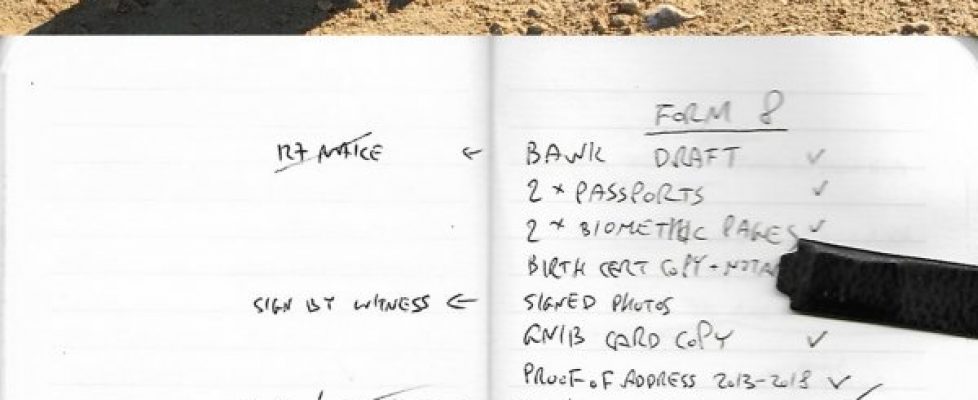 FORM 8
BANK DRAFT ✓
2 × PASSPORTS ✓
2 × BIOMETRIC PAGES ✓
BIRTH CERT COPY +
SIGN BY WITNESS ← SIGNED PHOTOS
GNIB CARD COPY ✓
PROOF OF ADDRESS 2013-2018 ✓